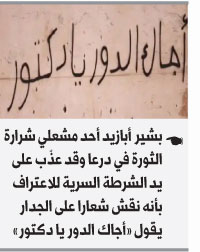 أجاك الدور يا دكتور
بشير أبازيد أحد مشعلي شرارة
الثورة في درعا وقد عذّب على
يد الشرطة السرية للاعتراف
بأنه نقش شعارا على الجدار
يقول «أجاك الدور يا دكتور»